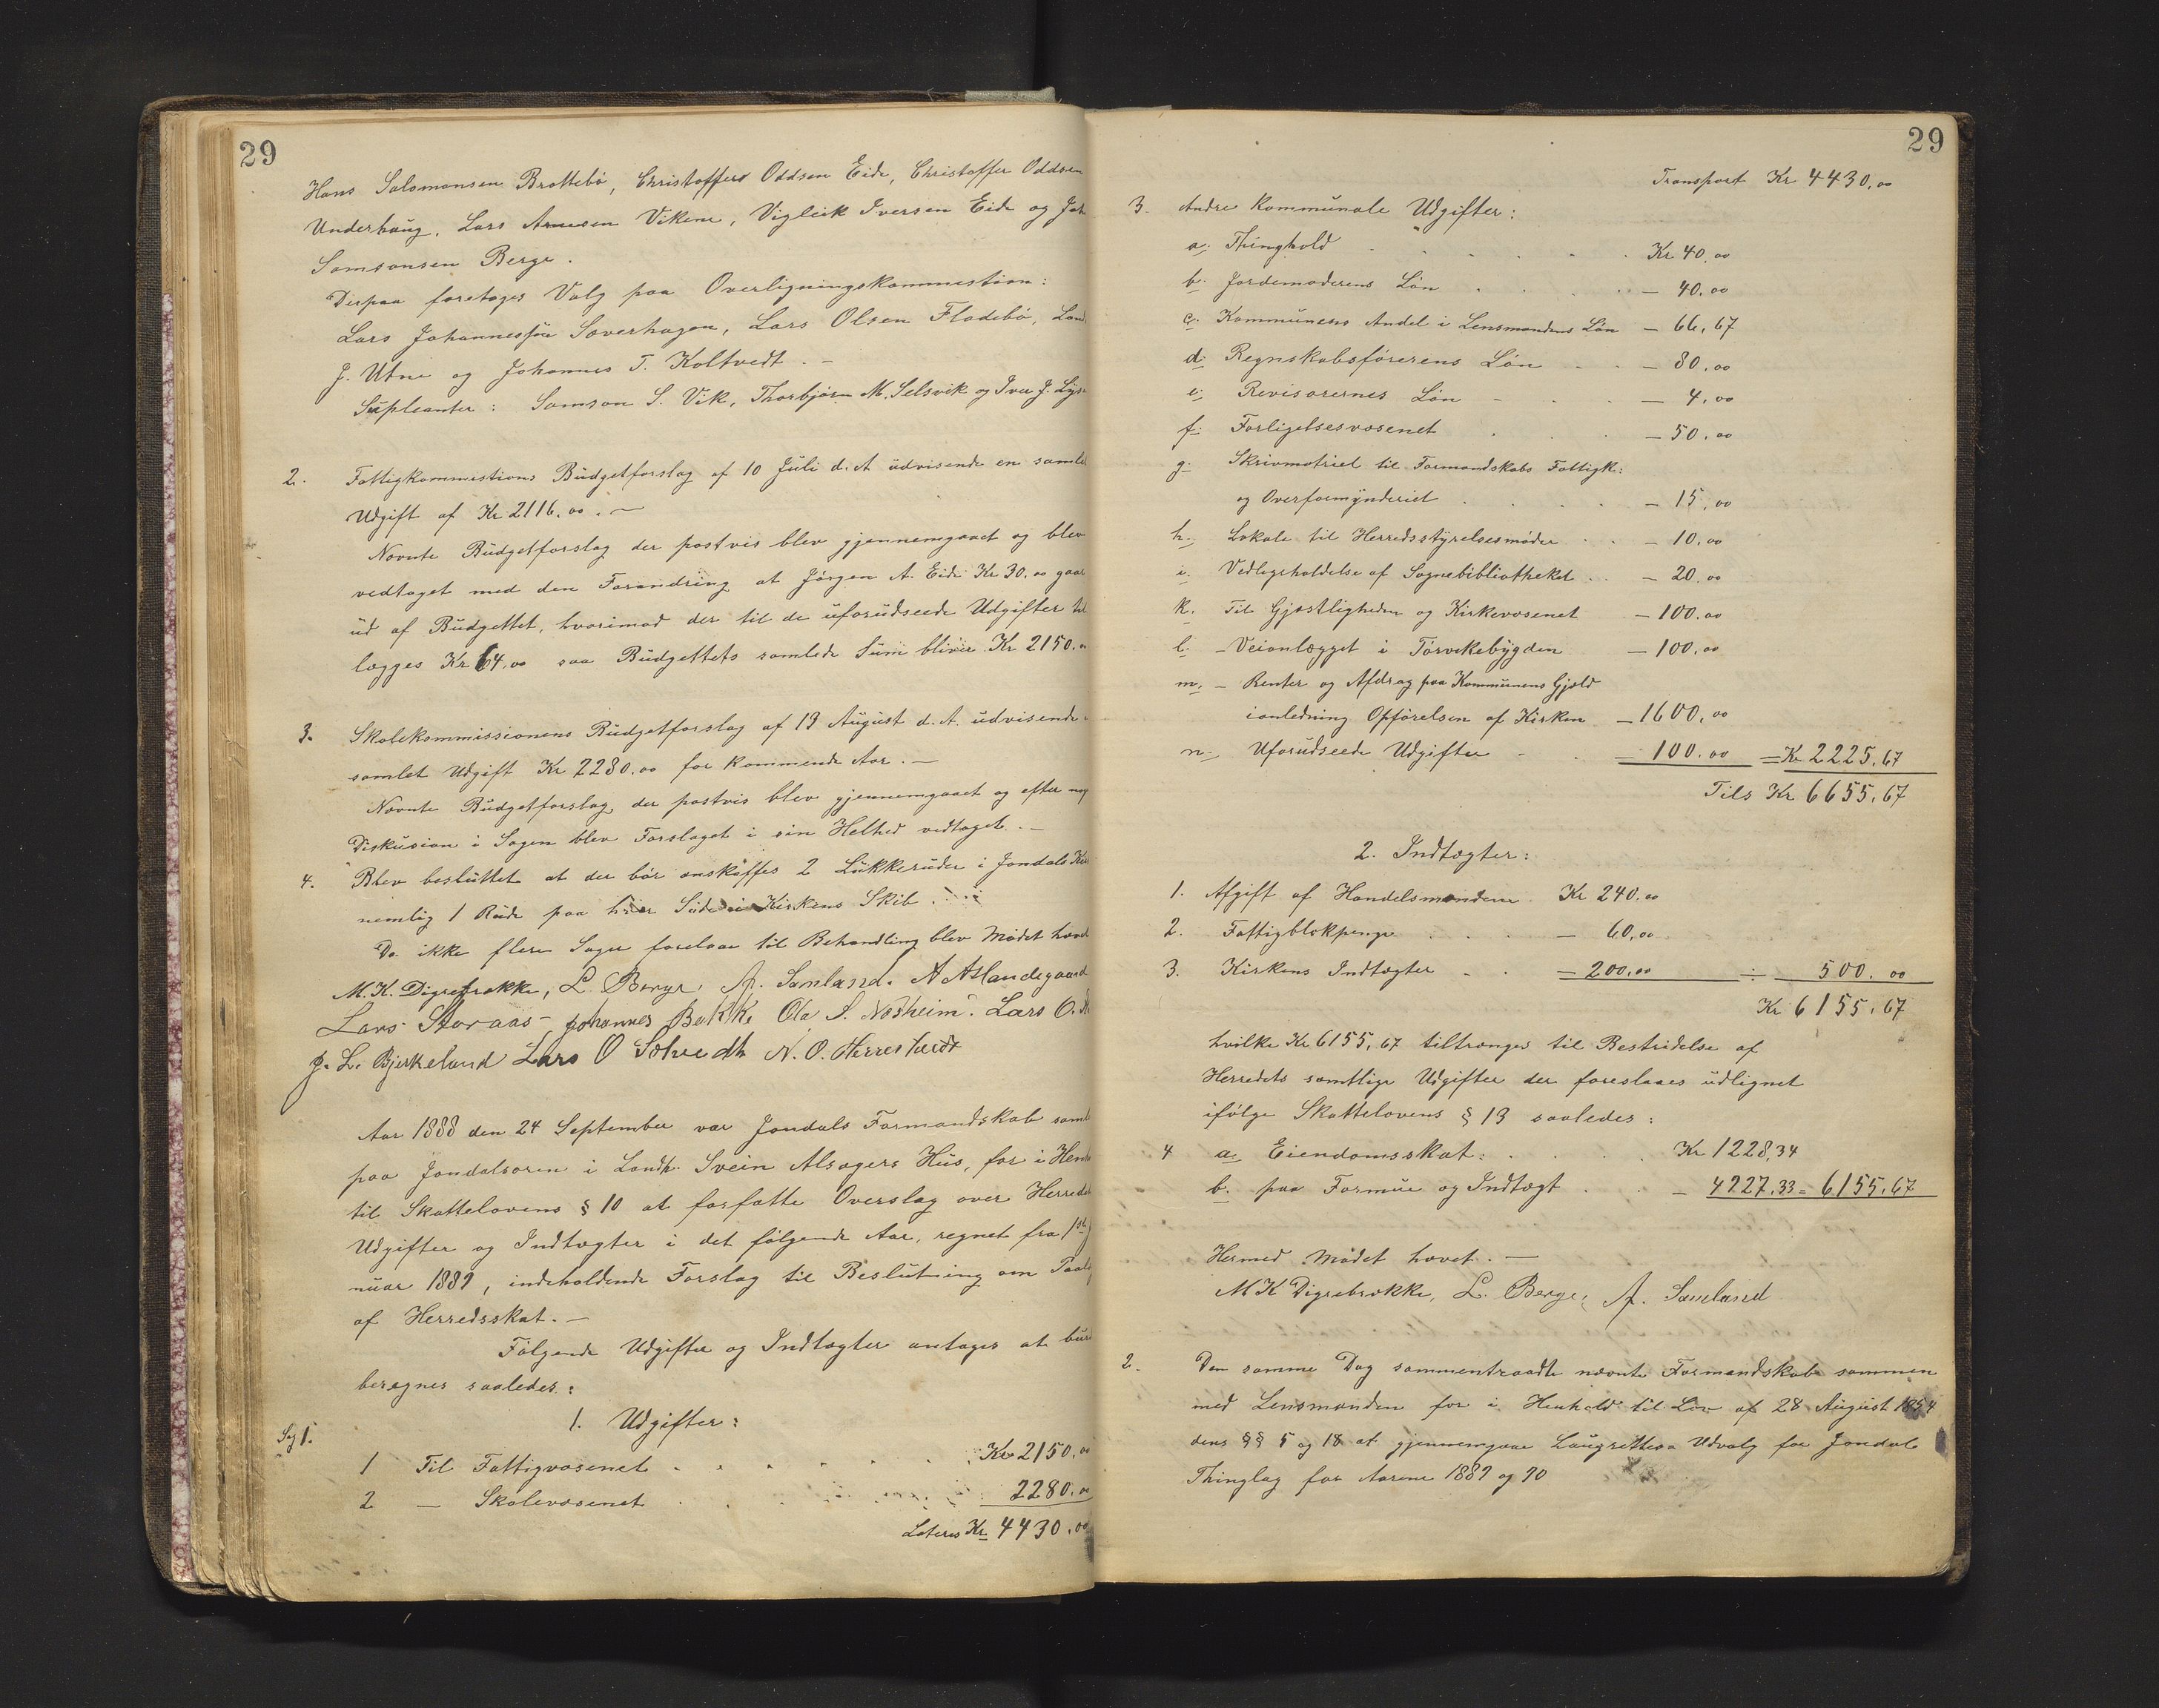 29
Hans Salomonsen Brattebø, Christoffer Oddsen Eide, Christoffer Oddsen
Underhaug, Lars Arnesen Vikene, Vigleik Iversen Eide og Joh
Samsonsen Berge.
Derpaa foretoges Valg paa Overligningskommestion:
Lars Johannessøn Saverhagen, Lars Olsen Fladebø, Lars
J. Utne og Johannes T. Koltvedt. —
Supleanter: Samson S. Vik, Thorbjørn M. Selsvik og Iver J. Lys
2. Fattigkommestions Budgetforslag af 10 Juli d. A udvisende en samlet
Udgift af Kr 2116.00. —
Nævnte Budgetforslag der postvis blev gjennemgaaet og blev
vedtaget med den Forandring at Jørgen A. Eide Kr 30.00 gaar
ud af Budgettet, hvorimod der til de uforudseede Udgifter til
lægges Kr 64.00 saa Budgettets samlede Sum bliver Kr 2150.00
3. Skolekommissionens Budgetforslag af 13 August d. A. udvisende
samlet Udgift Kr 2280.00 for kommende Aar. —
Nævnte Budgetforslag der postvis blev gjennemgaaet og efter nog
Diskusion i Sagen blev Forslaget i sin Helhed vedtaget. —
4. Blev besluttet at der bør anskaffes 2 Lukkeruder i Jondals Kir
nemlig 1 Rude paa hver Side i Kirkens Skib.
Da ikke flere Sager forelaae til Behandling blev Mødet hævet
M. K. Digrebrække, L. Berge, A. Samland. A Aslandegaard
Lars Storaas Johannes Bakke Ola S. Næsheim. Lars O.
J. L. Bjerkeland Lars O Solvedt N. O. Herrestvedt
Aar 1888 den 24 September var Jondals Formandskab saml
paa Jondalsøren i Landh. Svein Alsagers Hus, for i Hen
til Skattelovens § 10 at forfatte Overslag over Herredets
Udgifter og Indtægter i det følgende Aar, regnet fra 1ste
nuar 1889, indeholdende Forslag til Beslutning om Paal
af Herredsskat. —
Følgende Udgifter og Indtægter antages at bur
beregnes saaledes:
Sag 1. 1. Udgifter:
1 Til Fattigvæsenet . . . . . . Kr 2150.00
2 — Skolevæsenet . . . 2280.00
Lateres Kr 4430.00
29
Transport Kr 4430.00
3. Andre Kommunale Udgifter:
a. Thinghold . . . . . Kr 40.00
b. Jordemoderens Løn . . . . — 40.00
c. Kommunens Andel i Lensmandens Løn — 66,67
d. Regnskabsførerens Løn . . — 80.00
e. Revisorernes Løn . . . — 4.00
f. Forligelsesvæsenet . . . — 50.00
g. Skrivmatriel til Formandskabs Fattigk:
og Overformynderiet . . . . — 15.00
h. Lokale til Herredsstyrelsesmøder . . — 10.00
i. Vedligeholdelse af Sognebibliotheket . . — 20.00
k. Til Gjæstligheden og Kirkevæsenet — 100.00
l. — Veianlægget i Tørvikebygden — 100.00
m. — Renter og Afdrag paa Kommunens Gjæld
ianledning Opførelsen af Kirken — 1600.00
n. Uforudseede Udgifter . . — 100.00 = Kr 2225.67
Tils Kr 6655.67
2. Indtægter:
1. Afgift af Handelsmændene Kr 240.00
2. Fattigblokpenge . . . — 60,00
3. Kirkens Indtægter . . — 200.00 ÷ 500.00
Kr 6155.67
hvilke Kr 6155,67 tiltrænges til Bestridelse af
Herredets samtlige Udgifter der foreslaaes udlignet
ifølge Skattelovens § 13 saaledes:
4 a. Eiendomsskat: . . . . Kr 1228,34
b. paa Formue og Indtægt . . — 4927.33 = 6155.67
Hermed Mødet hævet. —
M K Digrebrække, L. Berge, A. Samland
2. Den samme Dag sammentraadte nævnte Formandskab sammen
med Lensmanden for i Henhold til Lov af 28 August 1854
dens §§ 5 og 18 at gjennemgaae Laugrettens Udvalg for Jondal
Thinglag for Aarene 1889 og 90